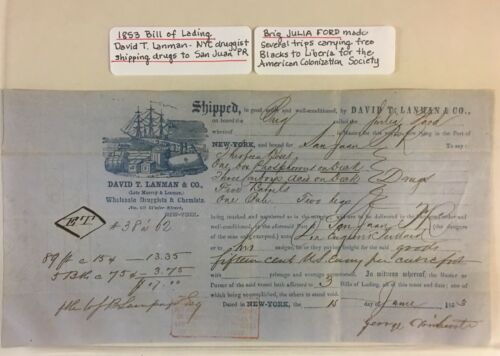 1853 Bill of Lading
David T. Lanman - NYC druggist
shipping drugs to San Juan PR
Brig JULIA FORD made
several trips carrying free
Blacks to Liberia for the
American Colonization Society
Shipped, in good order and well-conditioned, by DAVID T. LANMAN & CO.,
on board the Brig called the
whereof is Master now lying in the Port of
NEW-YORK, and bound for San Juan To say:
Boxes
One Box Phosphorus on deck
on deck Drugs
Five Barrels
One Two kegs
DAVID T. LANMAN & CO.,
(Late Murray & Lanman,)
Wholesale Druggists & Chemists,
No. 69 Water Street,
NEW-YORK.
ET
# 38 @ 62
being marked and numbered as in the margin, and are to be delivered in the like order and
condition at the Port of San Juan PR (the dangers
of the seas only excepted) unto
or to his assigns, he or they paying freight for the said goods
fifteen cents per cubic foot
with primage and average accustomed. In witness whereof, the Master or
Purser of the said vessel hath affirmed to 3 Bills of Lading, all of this tenor and date; one of
which being accomplished, the others to stand void.
Dated in NEW-YORK, the 15 day of June 1853
89 ft @ 15¢ - 13.35
5 @ 75¢ - 3.75
George